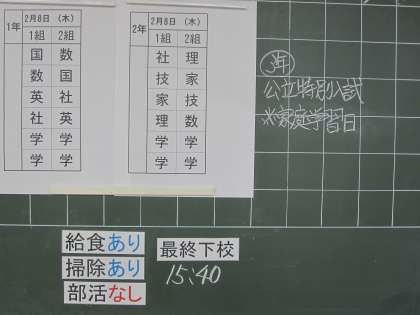 1年
2月8日 (木)
1組 2組
国 数
数 国
英 社
社 英
学 学
学 学
2年
2月8日 (木)
1組 2組
社 理
技 家
家 技
理 数
学 学
学 学
3年
公立特別入試
※家庭学習日
給食あり
掃除あり
部活なし
最終下校
15:40